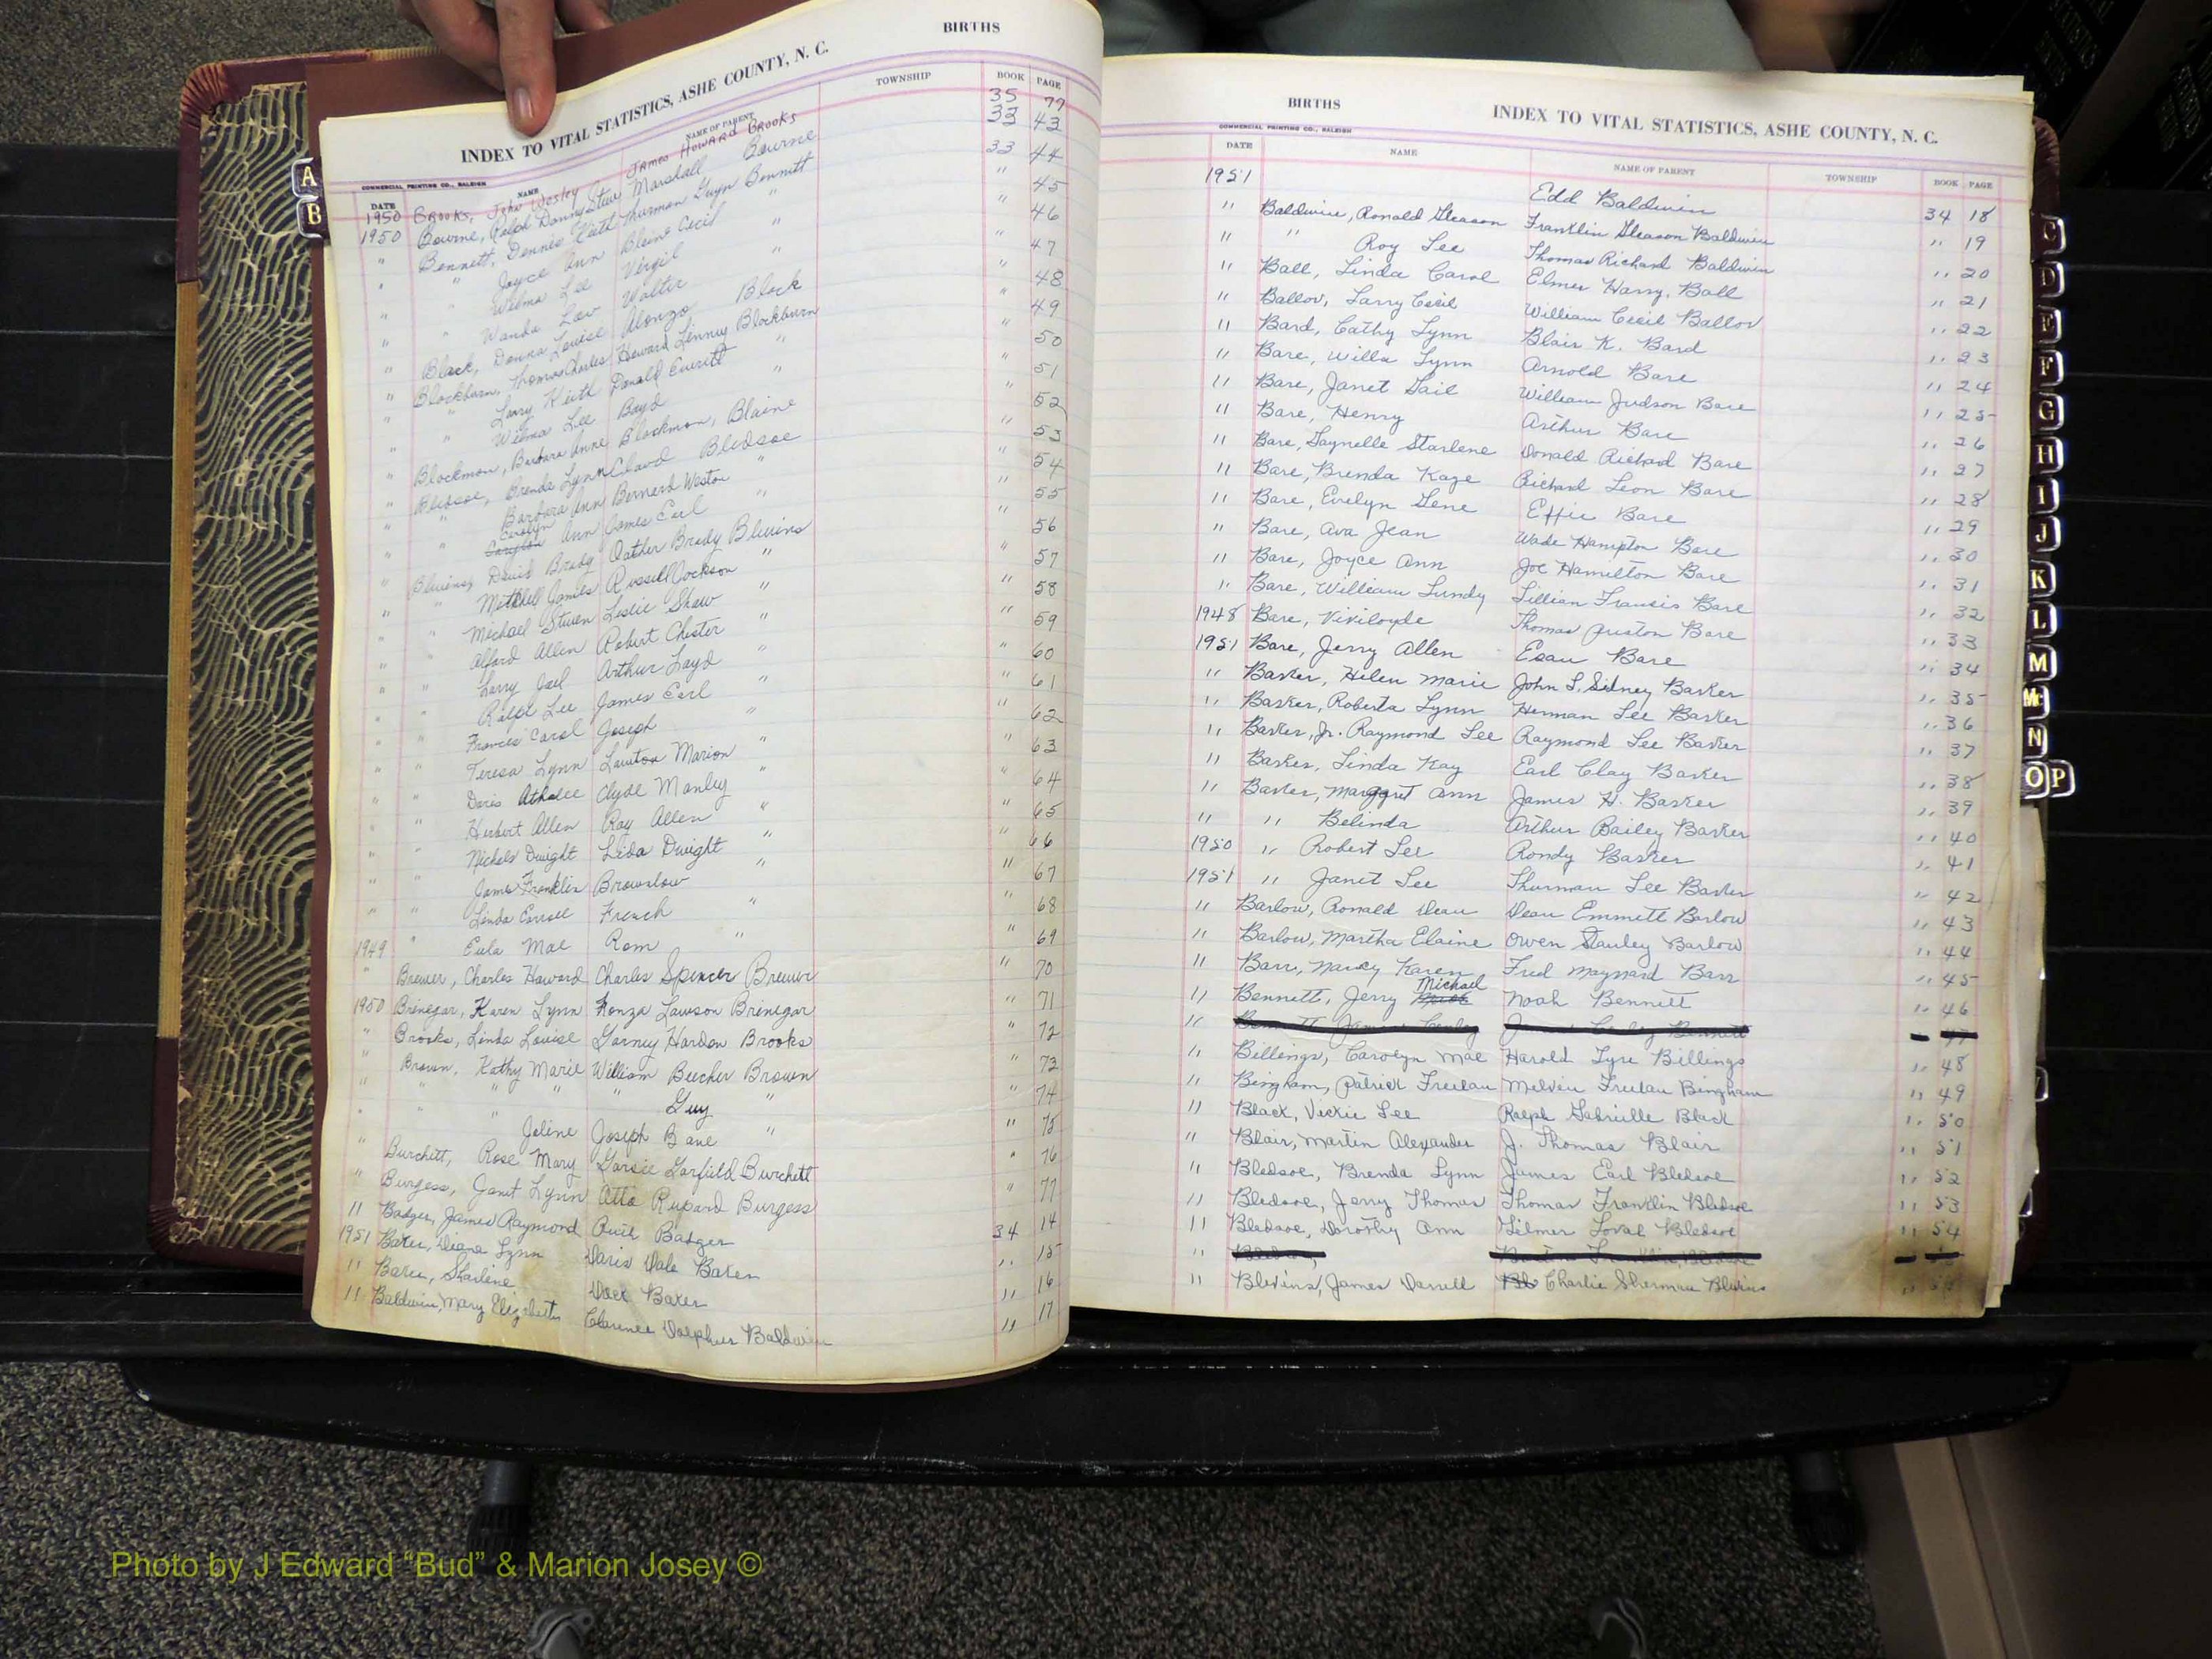 BIRTHS
INDEX TO VITAL STATISTICS, ASHE COUNTY, N. C.
COMMERCIAL PRINTING CO., RALEIGH
DATE NAME NAME OF PARENT TOWNSHIP BOOK PAGE
1950 Brooks, John Wesley James Howard Brooks 35 77
1950 Bourne, Ralph Danny Steve Marshall Bourne 33 43
" Bennett, Dennis Keith Thurman Guyn Bennett 33 44
" " Joyce Ann Blaine Cecil " " 45
" " Wilma Lee Virgil " " 46
" " Wanda Lou Walter " " 47
" Black, Donna Louise Alonzo Black " 48
" Blackburn, Thomas Charles Howard Linney Blackburn " 49
" " Larry Keith Donald Everitt " " 50
" " Wilma Lee Boyd " " 51
" Blackmon, Barbara Anne Blackmon, Blaine " 52
" Bledsoe, Brenda Lynn Claud Bledsoe " 53
" " Barbara Ann Bernard Weston " " 54
" " Carolyn Ann James Earl " " 55
" Blevins, David Brady Oather Brady Blevins " 56
" " Mitchell James Russell Jackson " " 57
" " Michael Steven Leslie Shaw " " 58
" " Alford Allen Robert Chester " " 59
" " Larry Joel Arthur Loyd " " 60
" " Ralph Lee James Earl " " 61
" Frances Carol Joseph " " 62
" " Teresa Lynn Lawton Marion " " 63
" " Doris Athalee Clyde Manley " " 64
" " Herbert Allen Ray Allen " " 65
" " Nichols Dwight Leda Dwight " " 66
" " James Franklin Brownlow " " 67
" " Linda Carroll French " " 68
1949 " Eula Mae Rom " " 69
" Brewer, Charles Howard Charles Spencer Brewer " 70
1950 Brinegar, Karen Lynn Konza Lawson Brinegar " 71
" Brooks, Linda Louise Garney Harden Brooks " 72
" Brown, Kathy Marie William Beecher Brown " 73
" " " " Guy " " 74
" " Joline Joseph Bane " " 75
" Burchett, Rose Mary Garsie Garfield Burchett " 76
" Burgess, Janet Lynn Otto Rupard Burgess " 77
" Badger, James Raymond Badger 34 14
1951 Baker, Diana Lynn Doris Dale Baker " 15
" Baker, Sharlene Dock Baker " 16
" Baldwin, Mary Elizabeth Clarence Dolphus Baldwin " 17
A
B
BIRTHS
INDEX TO VITAL STATISTICS, ASHE COUNTY, N. C.
COMMERCIAL PRINTING CO., RALEIGH
DATE NAME NAME OF PARENT TOWNSHIP BOOK PAGE
1951 Edd Baldwin 34 18
" Baldwin, Ronald Gleason Franklin Gleason Baldwin " 19
" " Roy Lee Thomas Richard Baldwin " 20
" Ball, Linda Carol Elmer Harry Ball " 21
" Ballou, Larry Cecil William Cecil Ballou " 22
" Bard, Cathy Lynn Blair K. Bard " 23
" Bare, Willa Lynn Arnold Bare " 24
" Bare, Janet Gail William Judson Bare " 25
" Bare, Henry Arthur Bare " 26
" Bare, Gaynelle Starlene Donald Richard Bare " 27
" Bare, Brenda Kaye Richard Leon Bare " 28
" Bare, Evelyn Gene Effie Bare " 29
" Bare, Ava Jean Wade Hampton Bare " 30
" Bare, Joyce Ann Joe Hamilton Bare " 31
" Bare, William Lundy Lillian Francis Bare " 32
1948 Bare, Thomas Preston Bare " 33
1951 Bare, Jerry Allen Esau Bare " 34
" Barker, Helen Marie John S. Sidney Barker " 35
" Barker, Roberta Lynn Herman Lee Barker " 36
" Barker, Jr. Raymond Lee Raymond Lee Barker " 37
" Barker, Linda Kay Earl Clay Barker " 38
" Barker, Margaret Ann James H. Barker " 39
" " Belinda Arthur Bailey Barker " 40
1950 " Robert Lee Rondy Barker " 41
1951 " Janet Lee Thurman Lee Barker " 42
" Barlow, Ronald Dean Dean Emmett Barlow " 43
" Barlow, Martha Elaine Owen Stanley Barlow " 44
" Barr, Nancy Karen Fred Maynard Barr " 45
" Bennett, Jerry Michael Noah Bennett " 46
"
" Billings, Carolyn Mae Harold Tyre Billings " 48
" Bingham, Patrick Freelan Melvin Freelan Bingham " 49
" Black, Vickie Lee Ralph Gabrille Black " 50
" Blair, Martin Alexander J. Thomas Blair " 51
" Bledsoe, Brenda Lynn James Earl Bledsoe " 52
" Bledsoe, Jerry Thomas Thomas Franklin Bledsoe " 53
" Bledsoe, Dorothy Ann Gilmer Loval Bledsoe " 54
"
" Blevins, James Darrell Charlie Sherman Blevins "
C
D
E
F
G
H
I
J
K
L
M
Mc
N
O P
Photo by J Edward “Bud” & Marion Josey ©